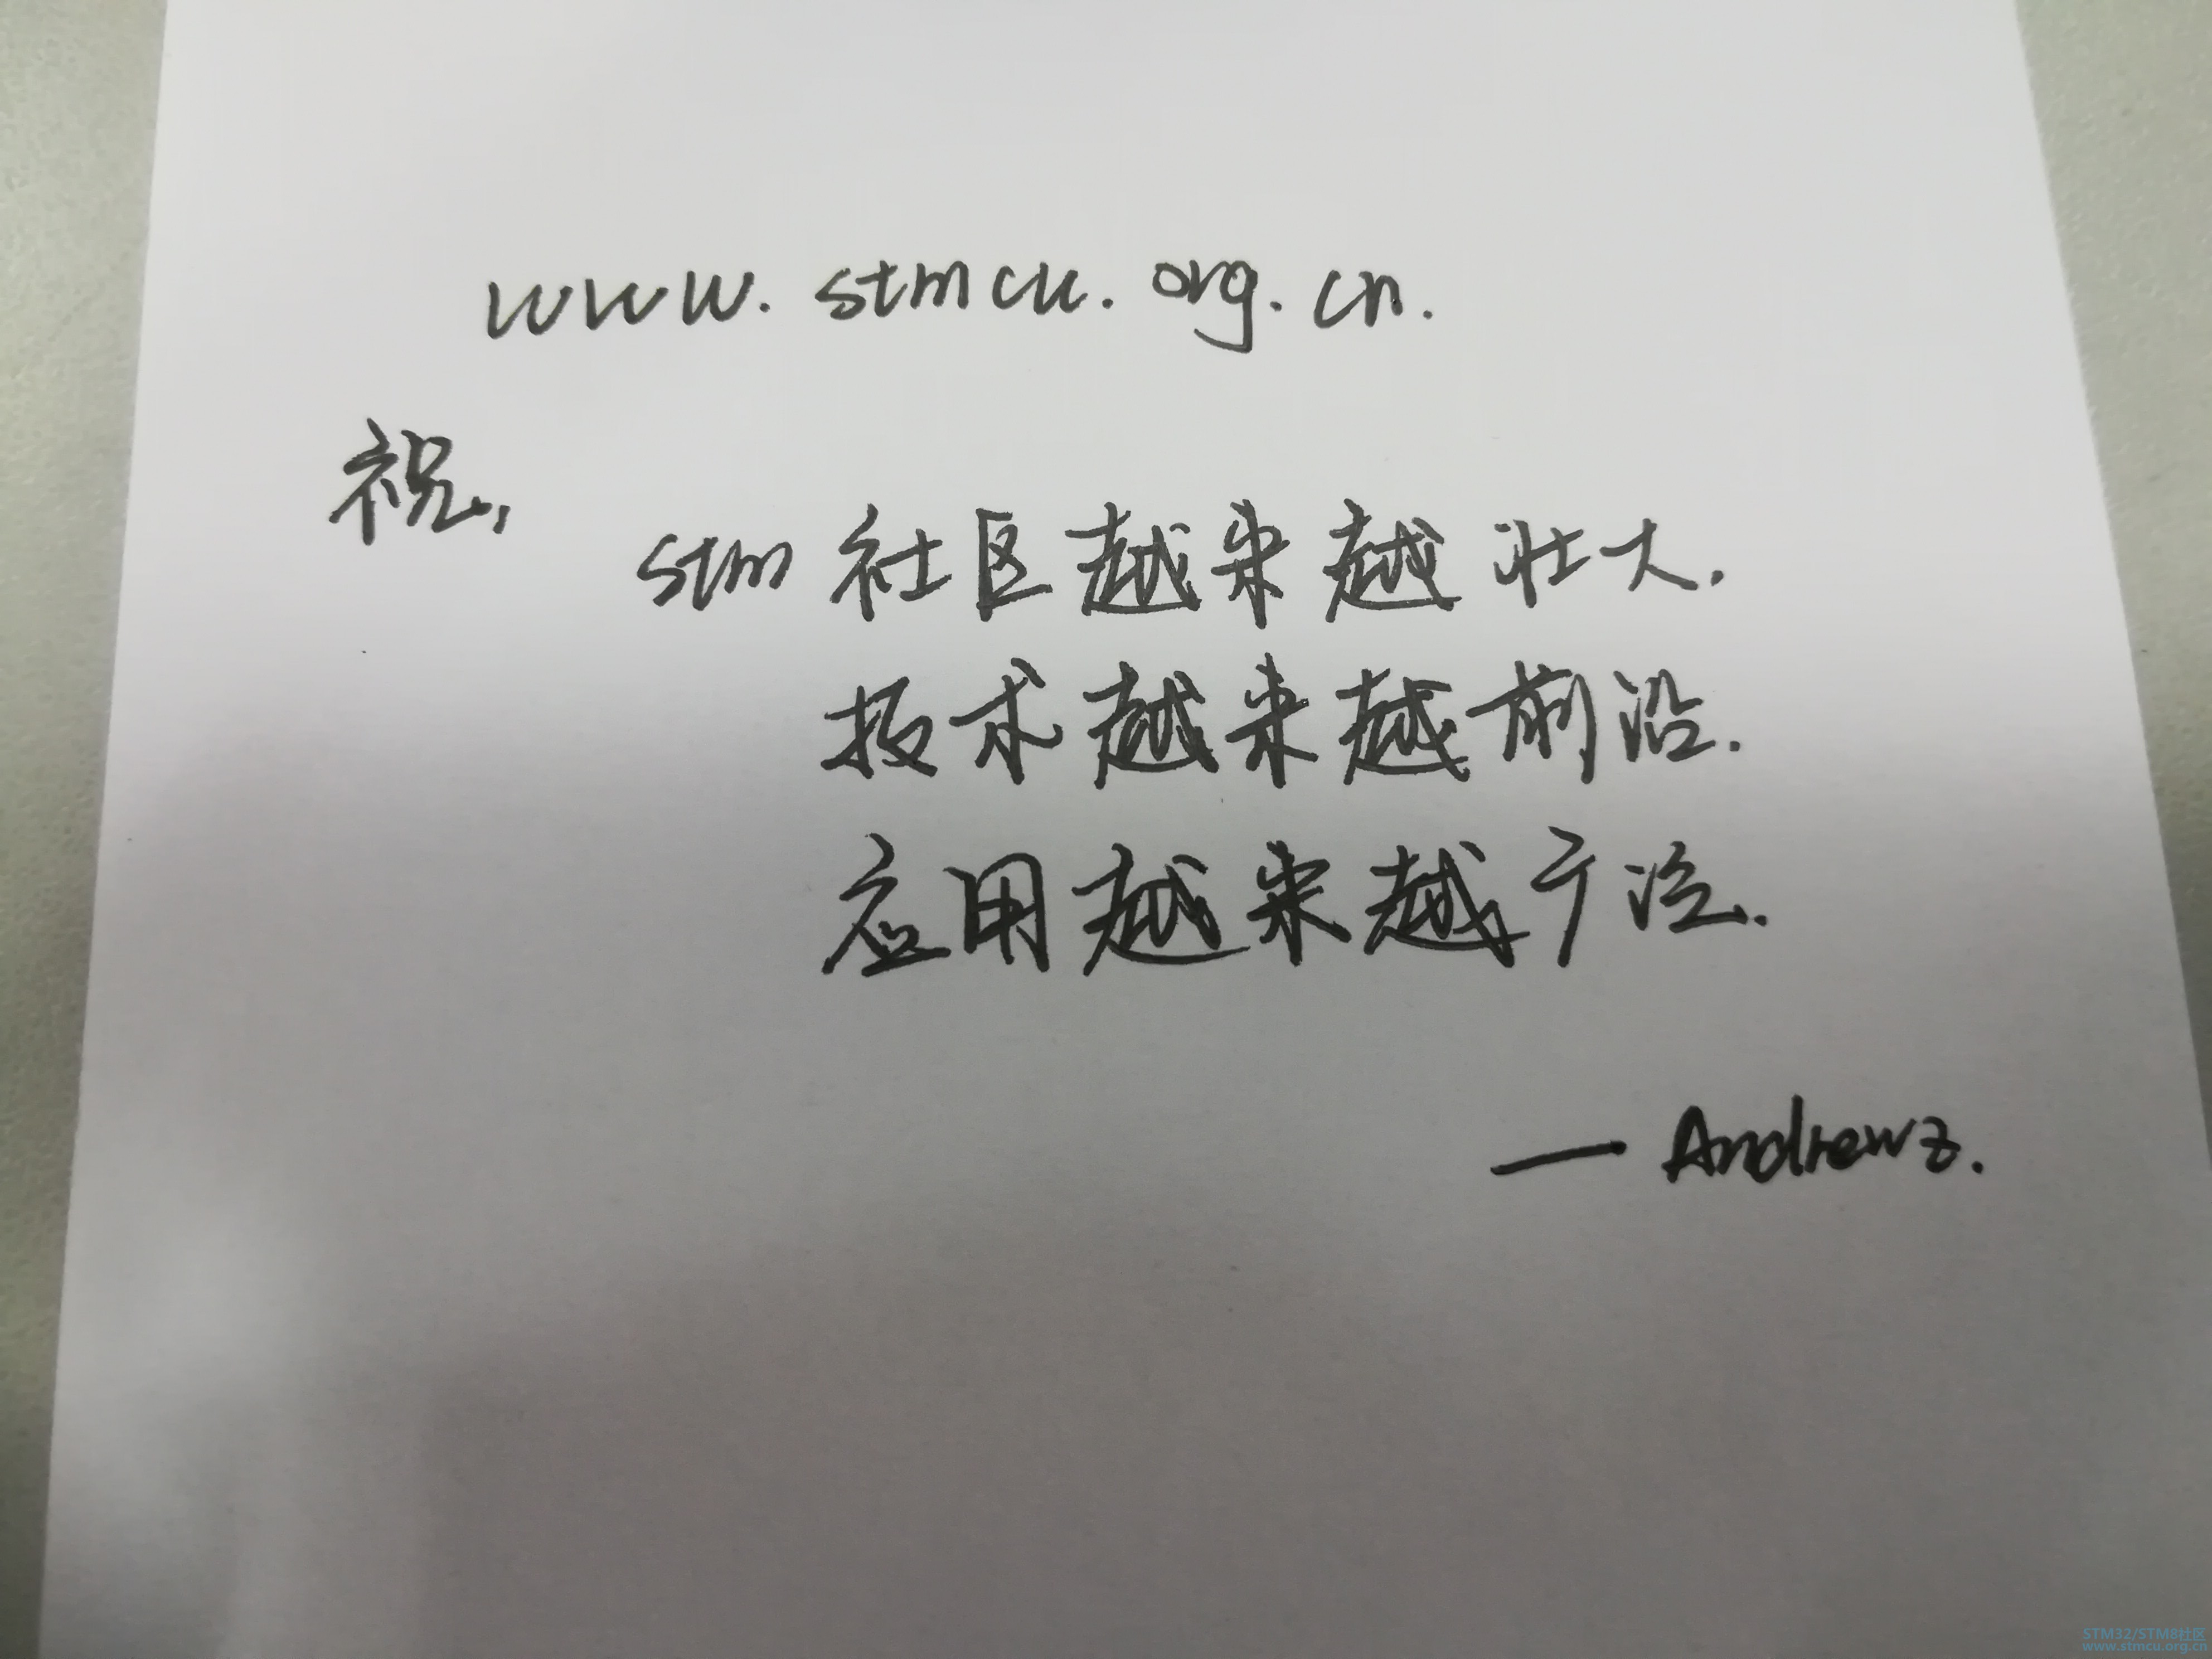 www.stmcu.org.cn.
祝,
stm 社区越来越壮大.
技术越来越前沿.
应用越来越广泛.
— Andrewz.
STM32/STM8社区
www.stmcu.org.cn